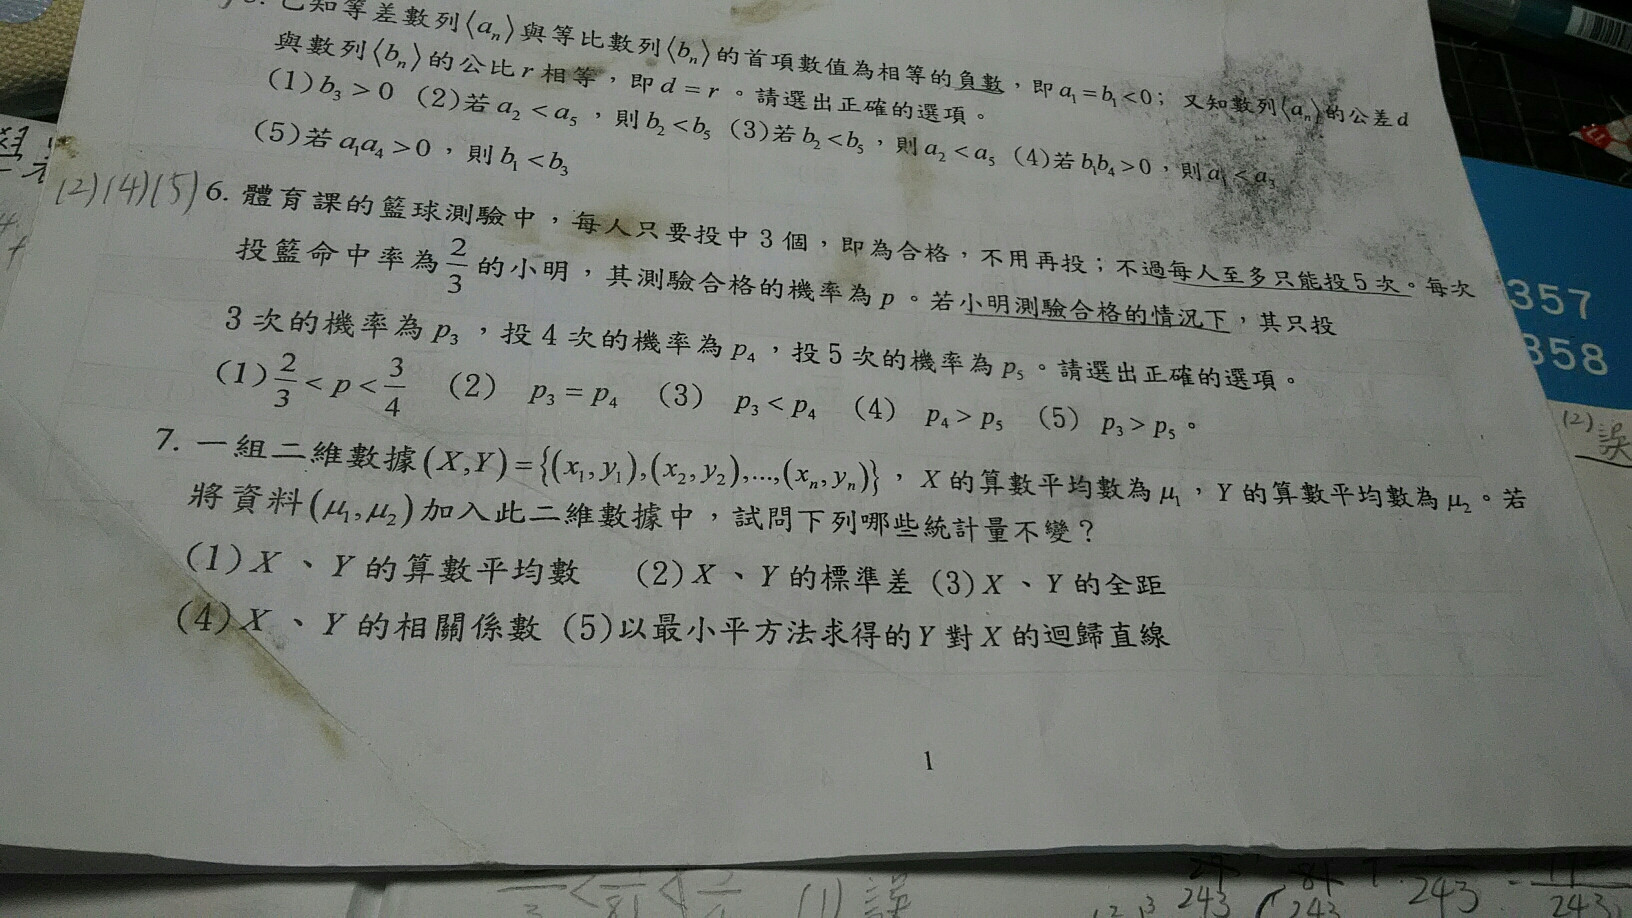 已知等差數列⟨aₙ⟩與等比數列⟨bₙ⟩的首項數值為相等的負數,即a₁=b₁<0;又知數列⟨aₙ⟩的公差d
與數列⟨bₙ⟩的公比r相等,即d=r。請選出正確的選項。
(1)b₃>0 (2)若a₂<a₅,則b₂<b₅ (3)若b₂<b₅,則a₂<a₅ (4)若b₁b₄>0,則a₁<a₃
(5)若a₁a₄>0,則b₁<b₃
(2)(4)(5) 6. 體育課的籃球測驗中,每人只要投中3個,即為合格,不用再投;不過每人至多只能投5次。每次
投籃命中率為2/3的小明,其測驗合格的機率為p。若小明測驗合格的情況下,其只投
3次的機率為p₃,投4次的機率為p₄,投5次的機率為p₅。請選出正確的選項。
(1) 2/3<p<3/4 (2) p₃=p₄ (3) p₃<p₄ (4) p₄>p₅ (5) p₃>p₅。
7. 一組二維數據(X,Y)={(x₁,y₁),(x₂,y₂),...,(xₙ,yₙ)},X的算數平均數為μ₁,Y的算數平均數為μ₂。若
將資料(μ₁,μ₂)加入此二維數據中,試問下列哪些統計量不變?
(1)X、Y的算數平均數 (2)X、Y的標準差 (3)X、Y的全距
(4)X、Y的相關係數 (5)以最小平方法求得的Y對X的迴歸直線
1
357
358
(2)誤
(1)誤
243
243
243
243